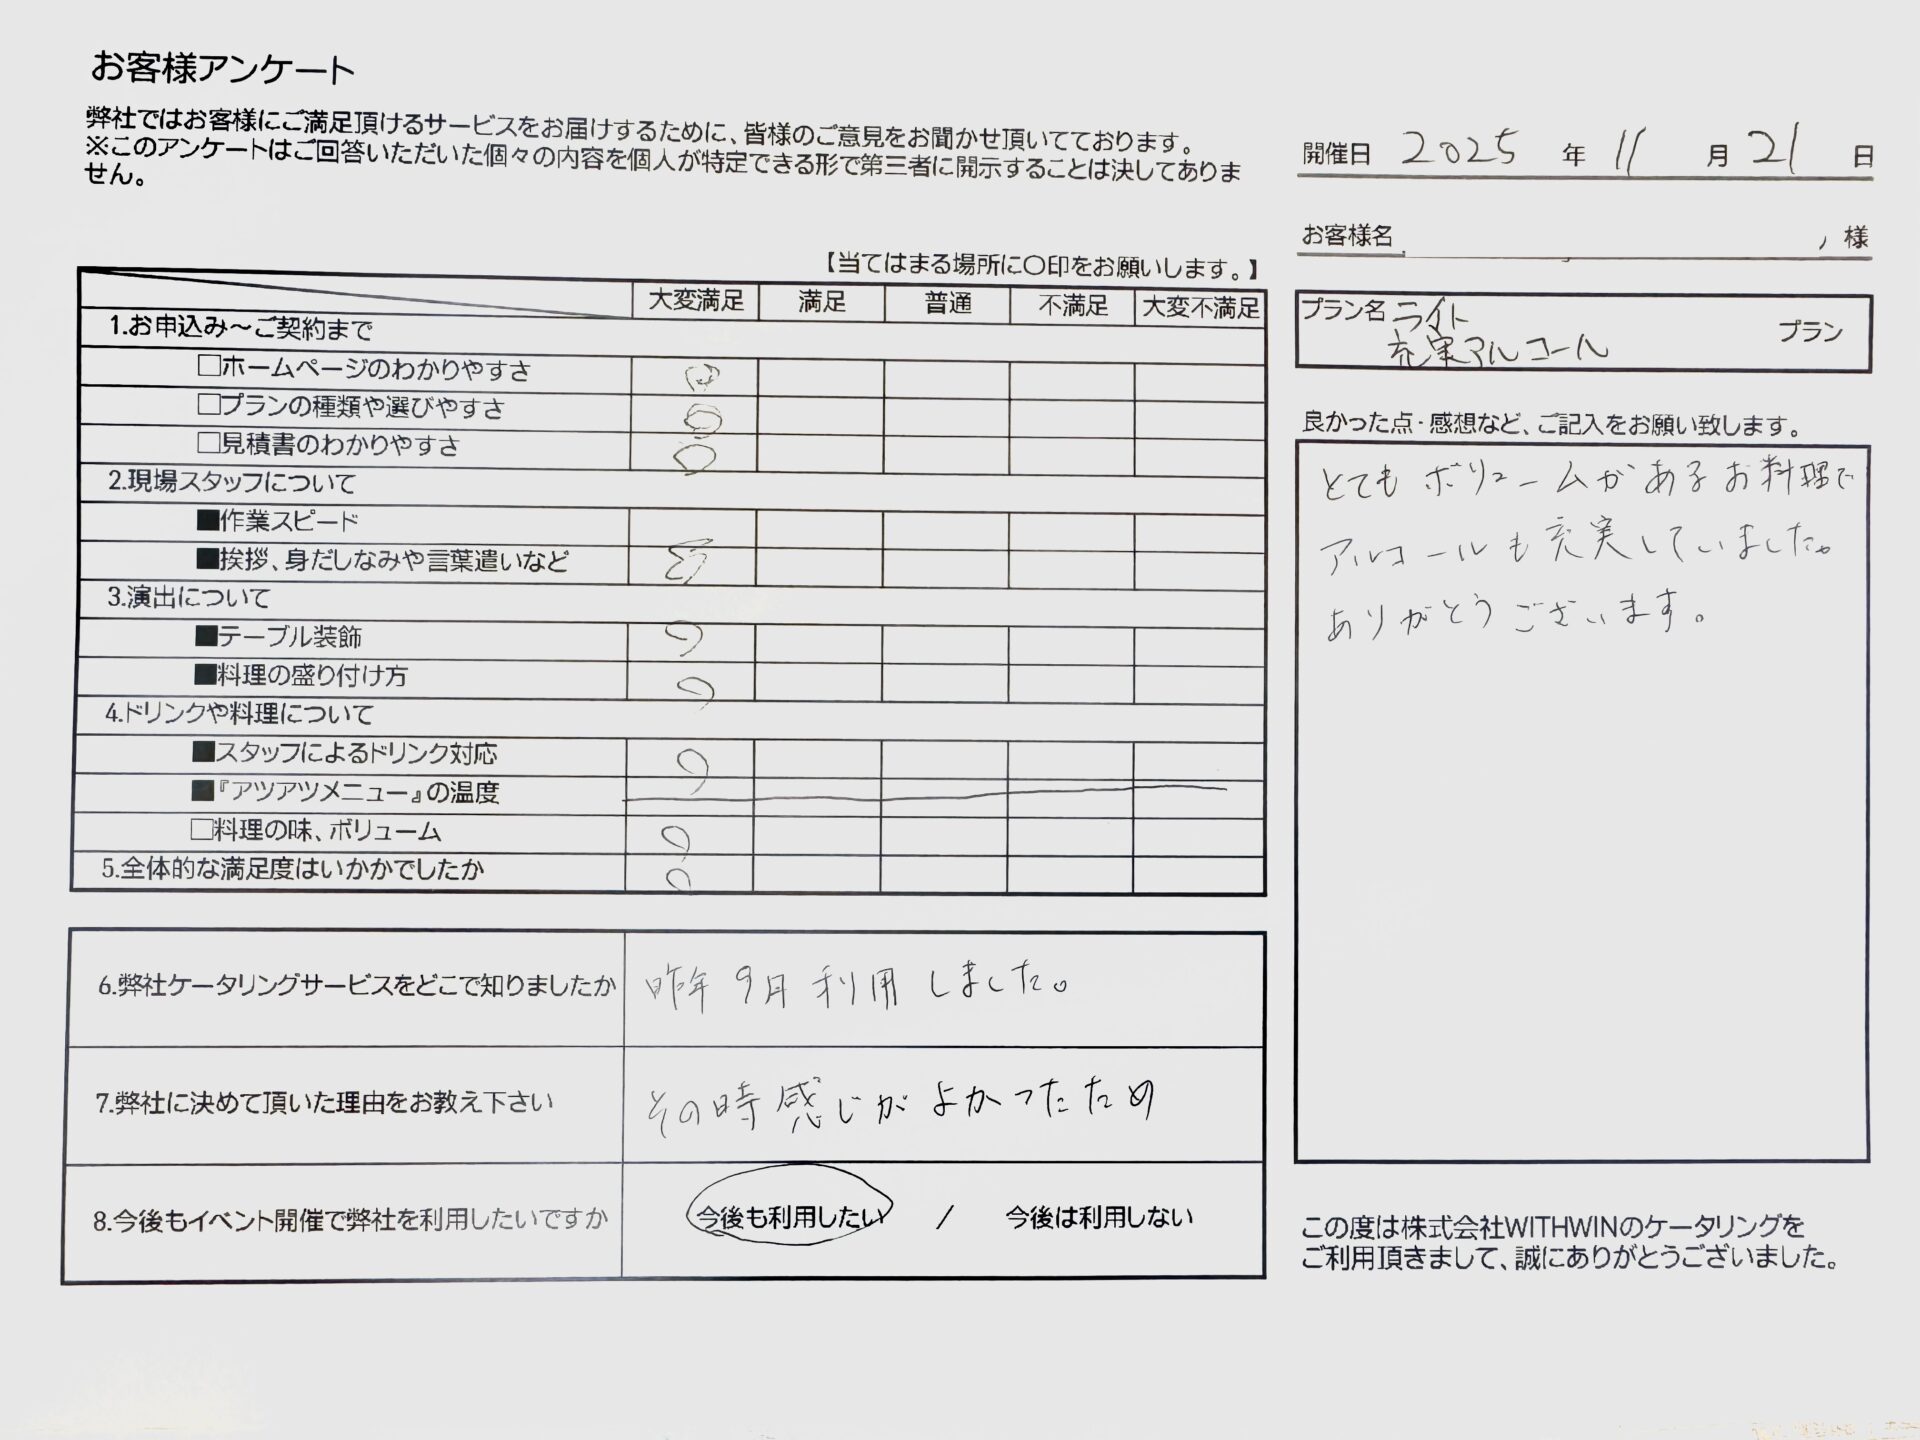 お客様アンケート
弊社ではお客様にご満足頂けるサービスをお届けするために、皆様のご意見をお聞かせ頂いてております。
※このアンケートはご回答いただいた個々の内容を個人が特定できる形で第三者に開示することは決してありま
せん。
開催日 2025 年 11 月 21 日
お客様名 様
プラン名 ライト
充実アルコール プラン
【当てはまる場所に〇印をお願いします。】
大変満足 満足 普通 不満足 大変不満足
1.お申込み～ご契約まで
□ホームページのわかりやすさ
□プランの種類や選びやすさ
□見積書のわかりやすさ
2.現場スタッフについて
■作業スピード
■挨拶、身だしなみや言葉遣いなど
3.演出について
■テーブル装飾
■料理の盛り付け方
4.ドリンクや料理について
■スタッフによるドリンク対応
■『アツアツメニュー』の温度
□料理の味、ボリューム
5.全体的な満足度はいかかでしたか
6.弊社ケータリングサービスをどこで知りましたか
昨年9月利用しました。
7.弊社に決めて頂いた理由をお教え下さい
その時感じがよかったため
8.今後もイベント開催で弊社を利用したいですか
今後も利用したい / 今後は利用しない
良かった点・感想など、ご記入をお願い致します。
とてもボリュームがあるお料理で
アルコールも充実していました。
ありがとうございます。
この度は株式会社WITHWINのケータリングを
ご利用頂きまして、誠にありがとうございました。